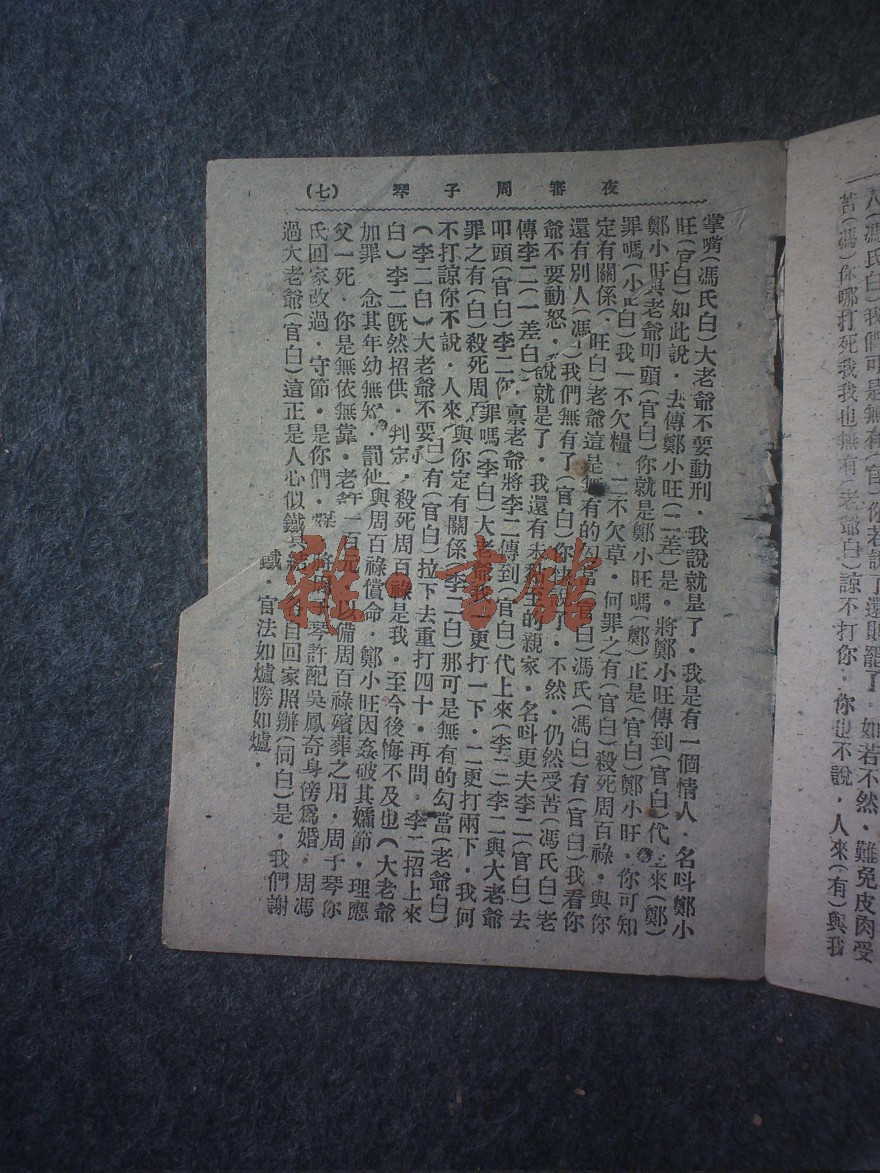 人(馮氏白)我們可是無有(官)你若說了還則罷了．如若不然．難免皮肉受
苦(馮)你哪打死我我也無有(老爺白)諒不打你．你也不說．人來(有)與我
夜審周子琴 (七)
掌嘴(馮氏白)大老爺不要動刑．我說就是了．我是有一個情人．名叫鄭小
旺(官白)如此說．去傳鄭小旺(二差)是．將鄭小旺傳到(官白)代 來(鄭)
鄭小旺與老爺叩頭(官白)你就是鄭小旺嗎(鄭)正是(官白)鄭小旺．你可知
罪嗎(小 白)我一不欠糧．二不欠草．何罪之有(官白)殺死周百祿．與你
定有關係( 旺白)老爺這是無有的勾當(官白)馮氏(馮白)有(官白)我看你
還有別人(馮 )我們無有了(官白)你 了．不然．仍然受苦(馮氏白)老
爺不要動怒． 說就是了．我還有 的親家．名叫更夫李二(官白)去
傳李二(一差白) 稟老爺將李二傳到(官白)代上來(李二)李二與大老爺
叩頭(官白)李二你 罪嗎(李白)大老爺我一更打一下．二更打兩下．我何
罪之有(白)殺死周百 與你定有關係(李二白)那可是無有的勾當(老爺白)
不打諒你不說．人來( 白)有(官白)拉下去重打四十．再問．李二招上來
(李二白)大老爺不要 ．殺死周百祿是我．至今後悔不及也(大老爺
白)李二既然招供．判定 與周百祿償命．鄭小旺因姦破其孀節．理應
加罪．念其年幼無知．罰他 一百元．以備周百祿殯葬之用．周子琴你
父一死．你是無依無靠．老爺 將 琴許配吳鳳奇身傍爲婚．周馮
氏回家改過．守節．是你們． 結．各自回家照辦(同白)是．我們謝
過大老爺(官白)這正是人心似鐵 鐵．官法如爐勝如爐．
雜·書館